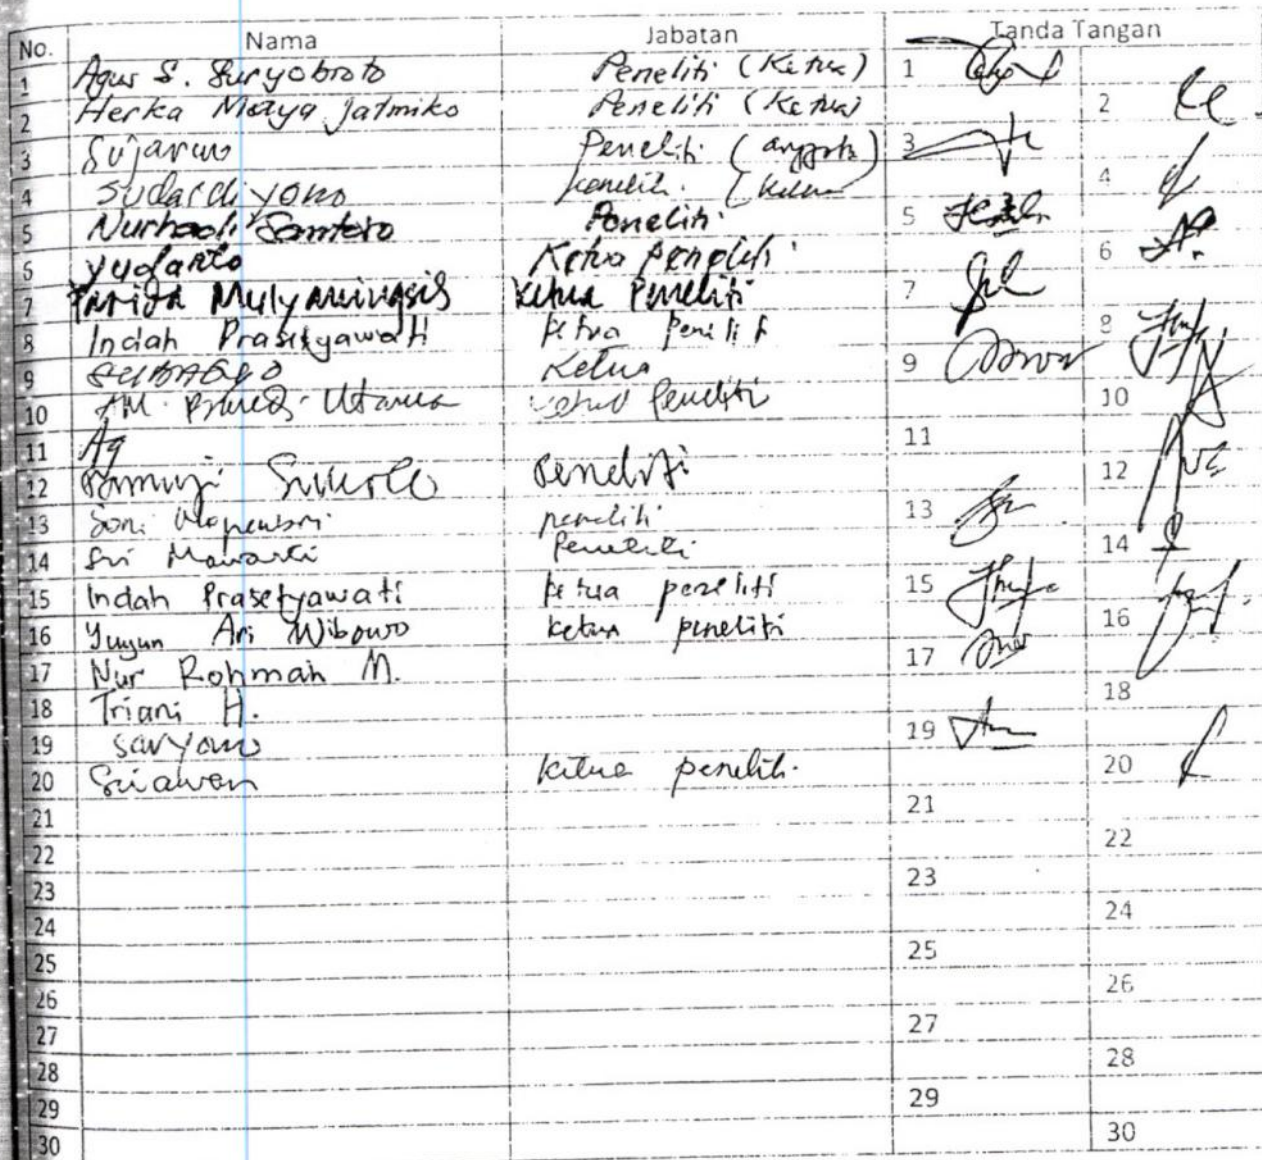 No. Nama Jabatan Tanda Tangan
1 Agus S. Suryobroto Peneliti (Ketua) 1
2 Herka Maya Jatmiko Peneliti (Ketua) 2
3 Sujarwo Peneliti (anggota) 3
4 Sudardiyono peneliti (Ketua 4
5 Nurhadi Santoso Peneliti 5
6 Yudanto Ketua peneliti 6
7 Farida Mulyaningsih Ketua Peneliti 7
8 Indah Prasetyawati Ketua peneliti 8
9 SUBAGYO Ketua 9
10 AM. Utama Ketua Peneliti 10
11 Ag 11
12 Pamuji Sukoco Peneliti 12
13 Soni peneliti 13
14 Sri Mawarti Peneliti 14
15 Indah Prasetyawati Ketua peneliti 15
16 Yuyun Ari Wibowo Ketua peneliti 16
17 Nur Rohmah M. 17
18 Triani H. 18
19 Saryono 19
20 Sriawan Ketua peneliti. 20
21 21
22 22
23 23
24 24
25 25
26 26
27 27
28 28
29 29
30 30